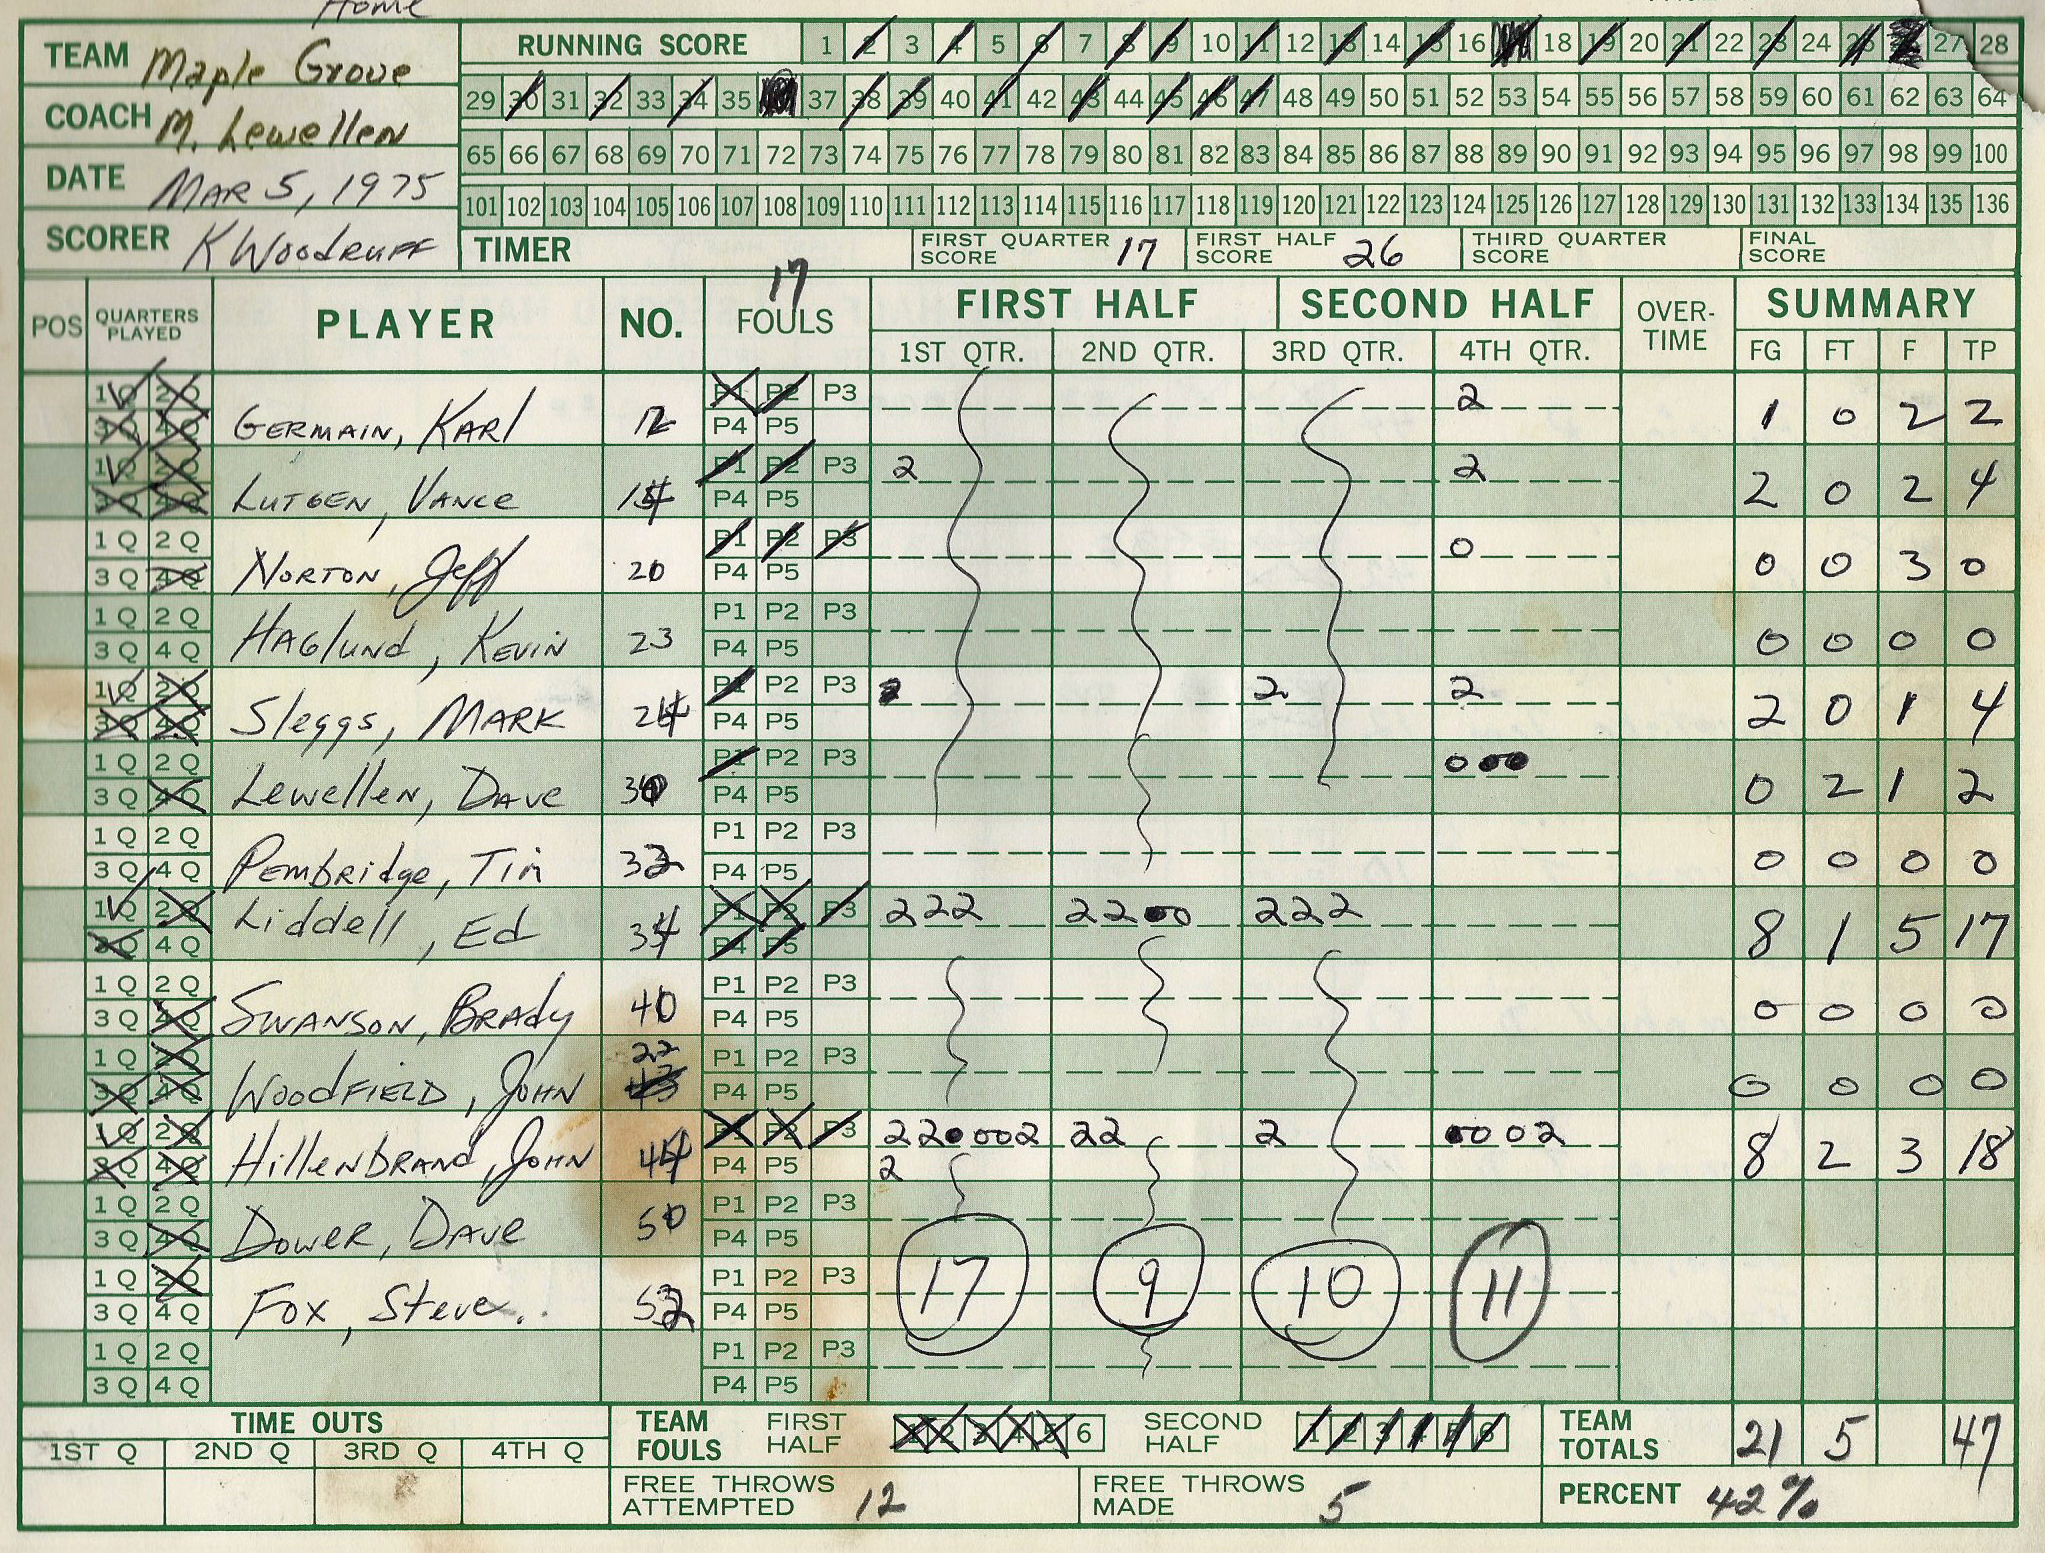 Home
TEAM Maple Grove
RUNNING SCORE 1 2 3 4 5 6 7 8 9 10 11 12 13 14 15 16 18 19 20 21 22 23 24 25 27 28
COACH M. Lewellen
29 30 31 32 33 34 35 37 38 39 40 41 42 43 44 45 46 47 48 49 50 51 52 53 54 55 56 57 58 59 60 61 62 63 64
DATE MAR 5, 1975
65 66 67 68 69 70 71 72 73 74 75 76 77 78 79 80 81 82 83 84 85 86 87 88 89 90 91 92 93 94 95 96 97 98 99 100
101 102 103 104 105 106 107 108 109 110 111 112 113 114 115 116 117 118 119 120 121 122 123 124 125 126 127 128 129 130 131 132 133 134 135 136
SCORER K WOODRUFF
TIMER FIRST QUARTER SCORE 17 FIRST HALF SCORE 26 THIRD QUARTER SCORE FINAL SCORE
17
POS QUARTERS PLAYED PLAYER NO. FOULS FIRST HALF SECOND HALF OVER-TIME SUMMARY
1ST QTR. 2ND QTR. 3RD QTR. 4TH QTR. FG FT F TP
1Q 2Q P1 P2 P3 2
3Q 4Q GERMAIN, KARL 12 P4 P5 1 0 2 2
1Q 2Q P1 P2 P3 2 2
3Q 4Q LUTGEN, VANCE 14 P4 P5 2 0 2 4
1Q 2Q P1 P2 P3 0
3Q 4Q NORTON, Jeff 20 P4 P5 0 0 3 0
1Q 2Q P1 P2 P3
3Q 4Q HAGlUNd, KEVIN 23 P4 P5 0 0 0 0
1Q 2Q P1 P2 P3 2 2 2
3Q 4Q Sleggs, MARK 24 P4 P5 2 0 1 4
1Q 2Q P1 P2 P3 000
3Q 4Q Lewellen, DAVE 30 P4 P5 0 2 1 2
1Q 2Q P1 P2 P3
3Q 4Q Pembridge, Tim 32 P4 P5 0 0 0 0
1Q 2Q P1 P2 P3 222 2200 222
3Q 4Q Liddell, Ed 34 P4 P5 8 1 5 17
1Q 2Q P1 P2 P3
3Q 4Q SWANSON, BRAdy 40 P4 P5 0 0 0 0
1Q 2Q 22 P1 P2 P3
3Q 4Q WOODFIELD, JOHN 43 P4 P5 0 0 0 0
1Q 2Q P1 P2 P3 220002 22 2 0002
3Q 4Q HillENbRANd, JOHN 44 P4 P5 2 8 2 3 18
1Q 2Q P1 P2 P3
3Q 4Q DOWER, DAVE 50 P4 P5
1Q 2Q P1 P2 P3 17 9 10 11
3Q 4Q FOX, Steve 52 P4 P5
1Q 2Q P1 P2 P3
3Q 4Q P4 P5
TIME OUTS TEAM FOULS FIRST HALF 1 2 3 4 5 6 SECOND HALF 1 2 3 4 5 6 TEAM TOTALS 21 5 47
1ST Q 2ND Q 3RD Q 4TH Q
FREE THROWS ATTEMPTED 12 FREE THROWS MADE 5 PERCENT 42%